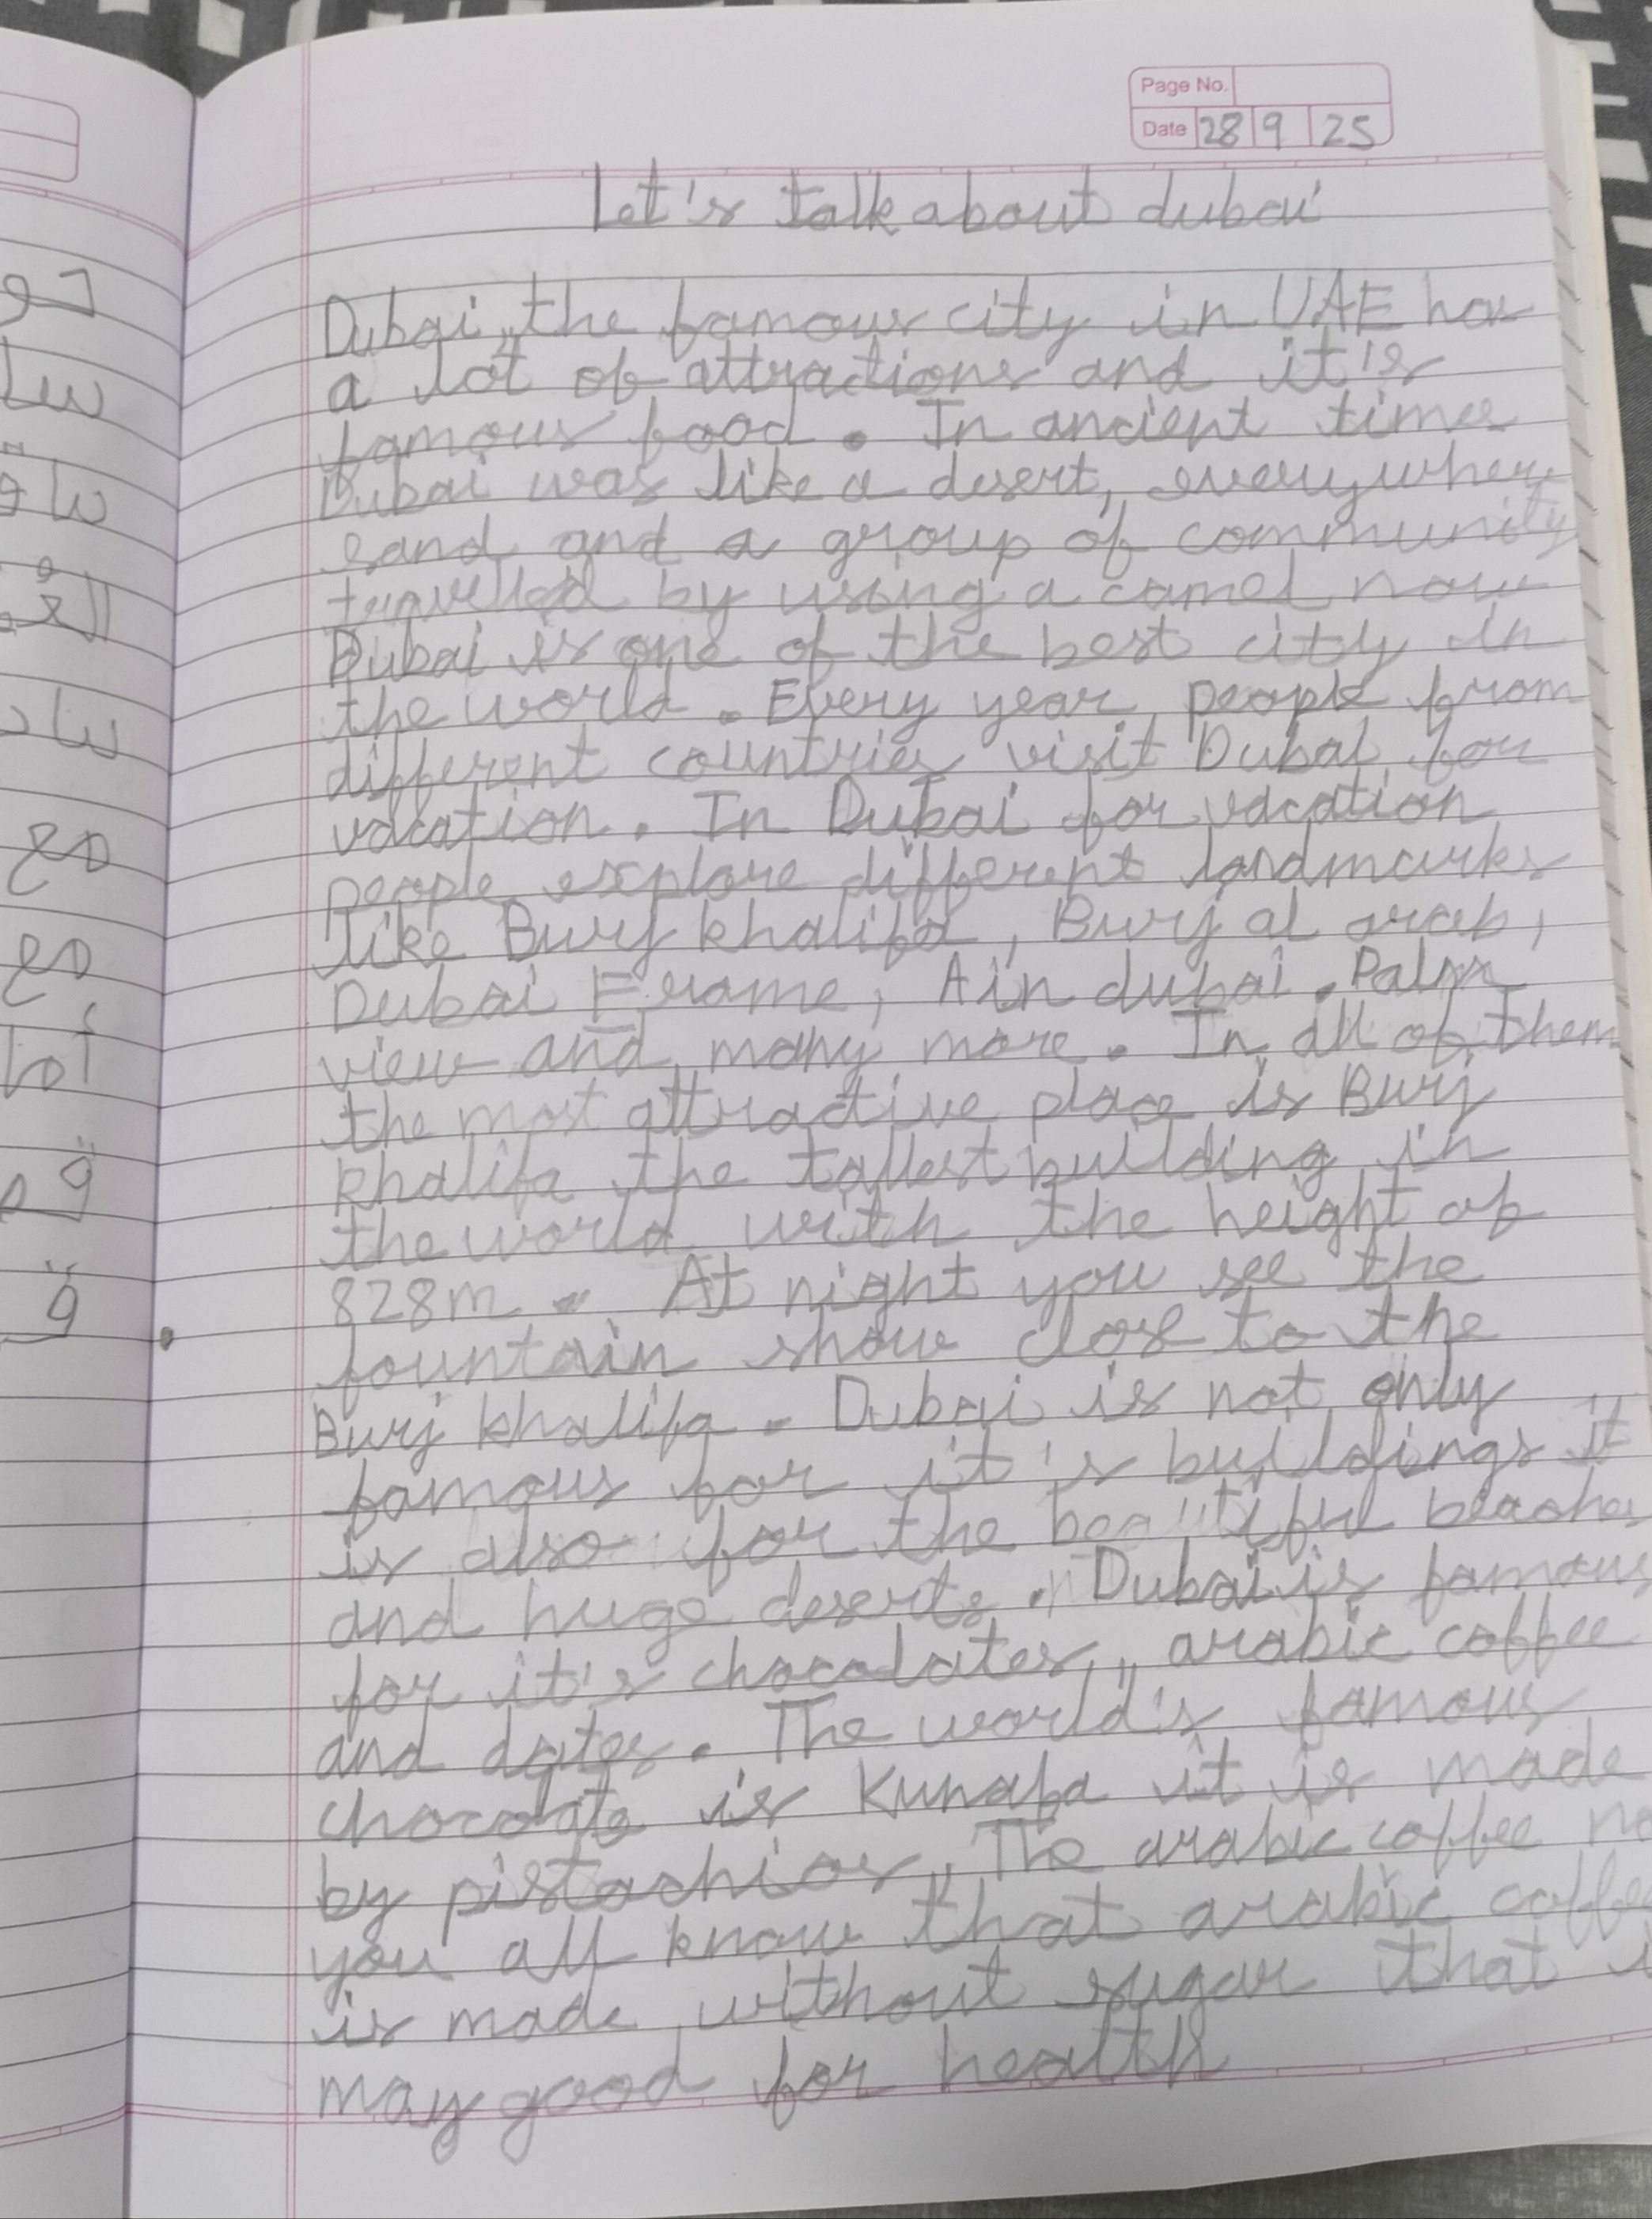 Page No.
Date 28 9 25
Let's talk about dubai
Dubai, the famous city in UAE has
a lot of attractions and it's
famous food. In ancient times
Dubai was like a desert, everywhere
sand and a group of community
travelled by using a camel now
Dubai is one of the best city in
the world. Every year people from
different countries visit Dubai for
vacation. In Dubai for vacation
people explore different landmarks
like Burj khalifa, Burj al arab,
Dubai Frame, Ain dubai, Palm
view and many more. In all of them
the most attractive place is Burj
khalifa the tallest building in
the world with the height of
828m. At night you see the
fountain show close to the
Burj khalifa. Dubai is not only
famous for it's buildings it
is also for the beautiful beaches
and huge deserts. Dubai is famous
for it's chocolates, arabic coffee
and dates. The world's famous
chocolate is Kunafa it is made
by pistachios, The arabic coffee
you all know that arabic coffee
is made without sugar that
may good for health